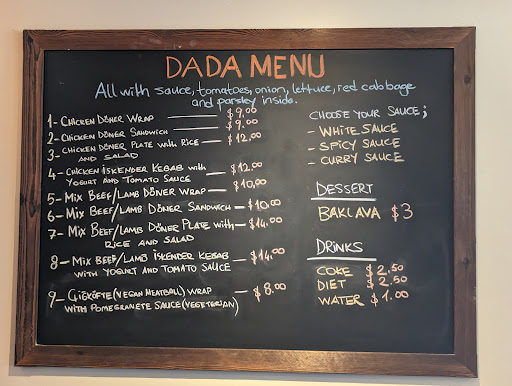 DADA MENU
All with sauce, tomatoes, onion, lettuce, red cabbage
and parsley inside.
1- CHICKEN DÖNER WRAP — $9.00
2- CHICKEN DÖNER SANDWICH — $9.00
3- CHICKEN DÖNER PLATE with RICE — $12.00
AND SALAD
4- CHICKEN İSKENDER KEBAB with — $12.00
YOGURT AND TOMATO SAUCE
5- MIX BEEF/LAMB DÖNER WRAP — $10.00
6- MIX BEEF/LAMB DÖNER SANDWICH — $10.00
7- MIX BEEF/LAMB DÖNER PLATE with — $14.00
RICE AND SALAD
8- MIX BEEF/LAMB İSKENDER KEBAB — $14.00
WITH YOGURT AND TOMATO SAUCE
9- ÇİĞKÖFTE (VEGAN MEATBALL) WRAP — $8.00
WITH POMEGRANETE SAUCE (VEGETERIAN)
CHOOSE YOUR SAUCE;
- WHITE SAUCE
- SPICY SAUCE
- CURRY SAUCE
DESSERT
BAKLAVA $3
DRINKS
COKE $2.50
DIET $2.50
WATER $1.00